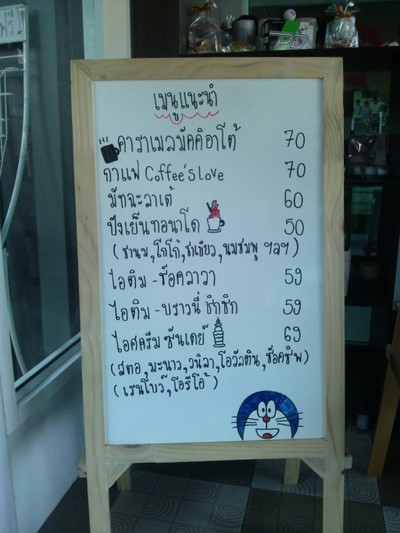 เมนูแนะนำ
คาราเมลมัคคิอาโต้ 70
กาแฟ Coffee's Love 70
มัทฉะลาเต้ 60
ปังเย็นทอนาโด 50
(ชานม,โกโก้,ชาเขียว,นมชมพู ฯลฯ)
ไอติม - ช็อคลาวา 59
ไอติม - บราวนี่ ชิกชิก 59
ไอศครีม ซันเดย์ 69
(สตอ,มะนาว,วนิลา,โอวัลติน,ช็อคชิพ)
(เรนโบว์,โอรีโอ้)